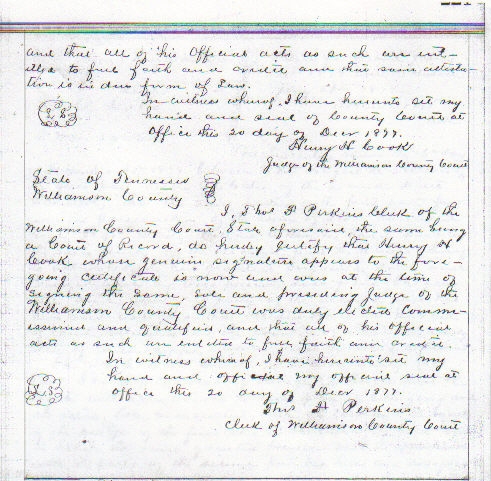 221
and that all of his Official acts as such are ent-
itled to full faith and credit and that same attesta-
tion is in due form of Law.
In witness whereof, I have hereunto set my
hand and seal of County Court at
Office this 20 day of Decr 1877.
Henry H Cook
Judge of the Williamson County Court
State of Tennessee
Williamson County
I, Thos H Perkins Clerk of the
Williamson County Court, State aforesaid, the same being
a Court of Record, do hereby certify that Henry H
Cook whose genuine signature appears to the fore-
going certificate is now and was at the time of
signing the same, sole and presiding Judge of the
Williamson County Court was duly elected Comm-
issioned and qualified, and that all of his official
acts as such are entitled to full faith and credit.
In witness whereof, I have hereunto set my
hand and my official seal at
L.S.
office this 20 day of Decr 1877.
Thos H Perkins
Clerk of Williamson County Court